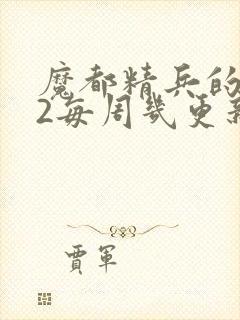 魔都精兵的
2每周几更新
贾军